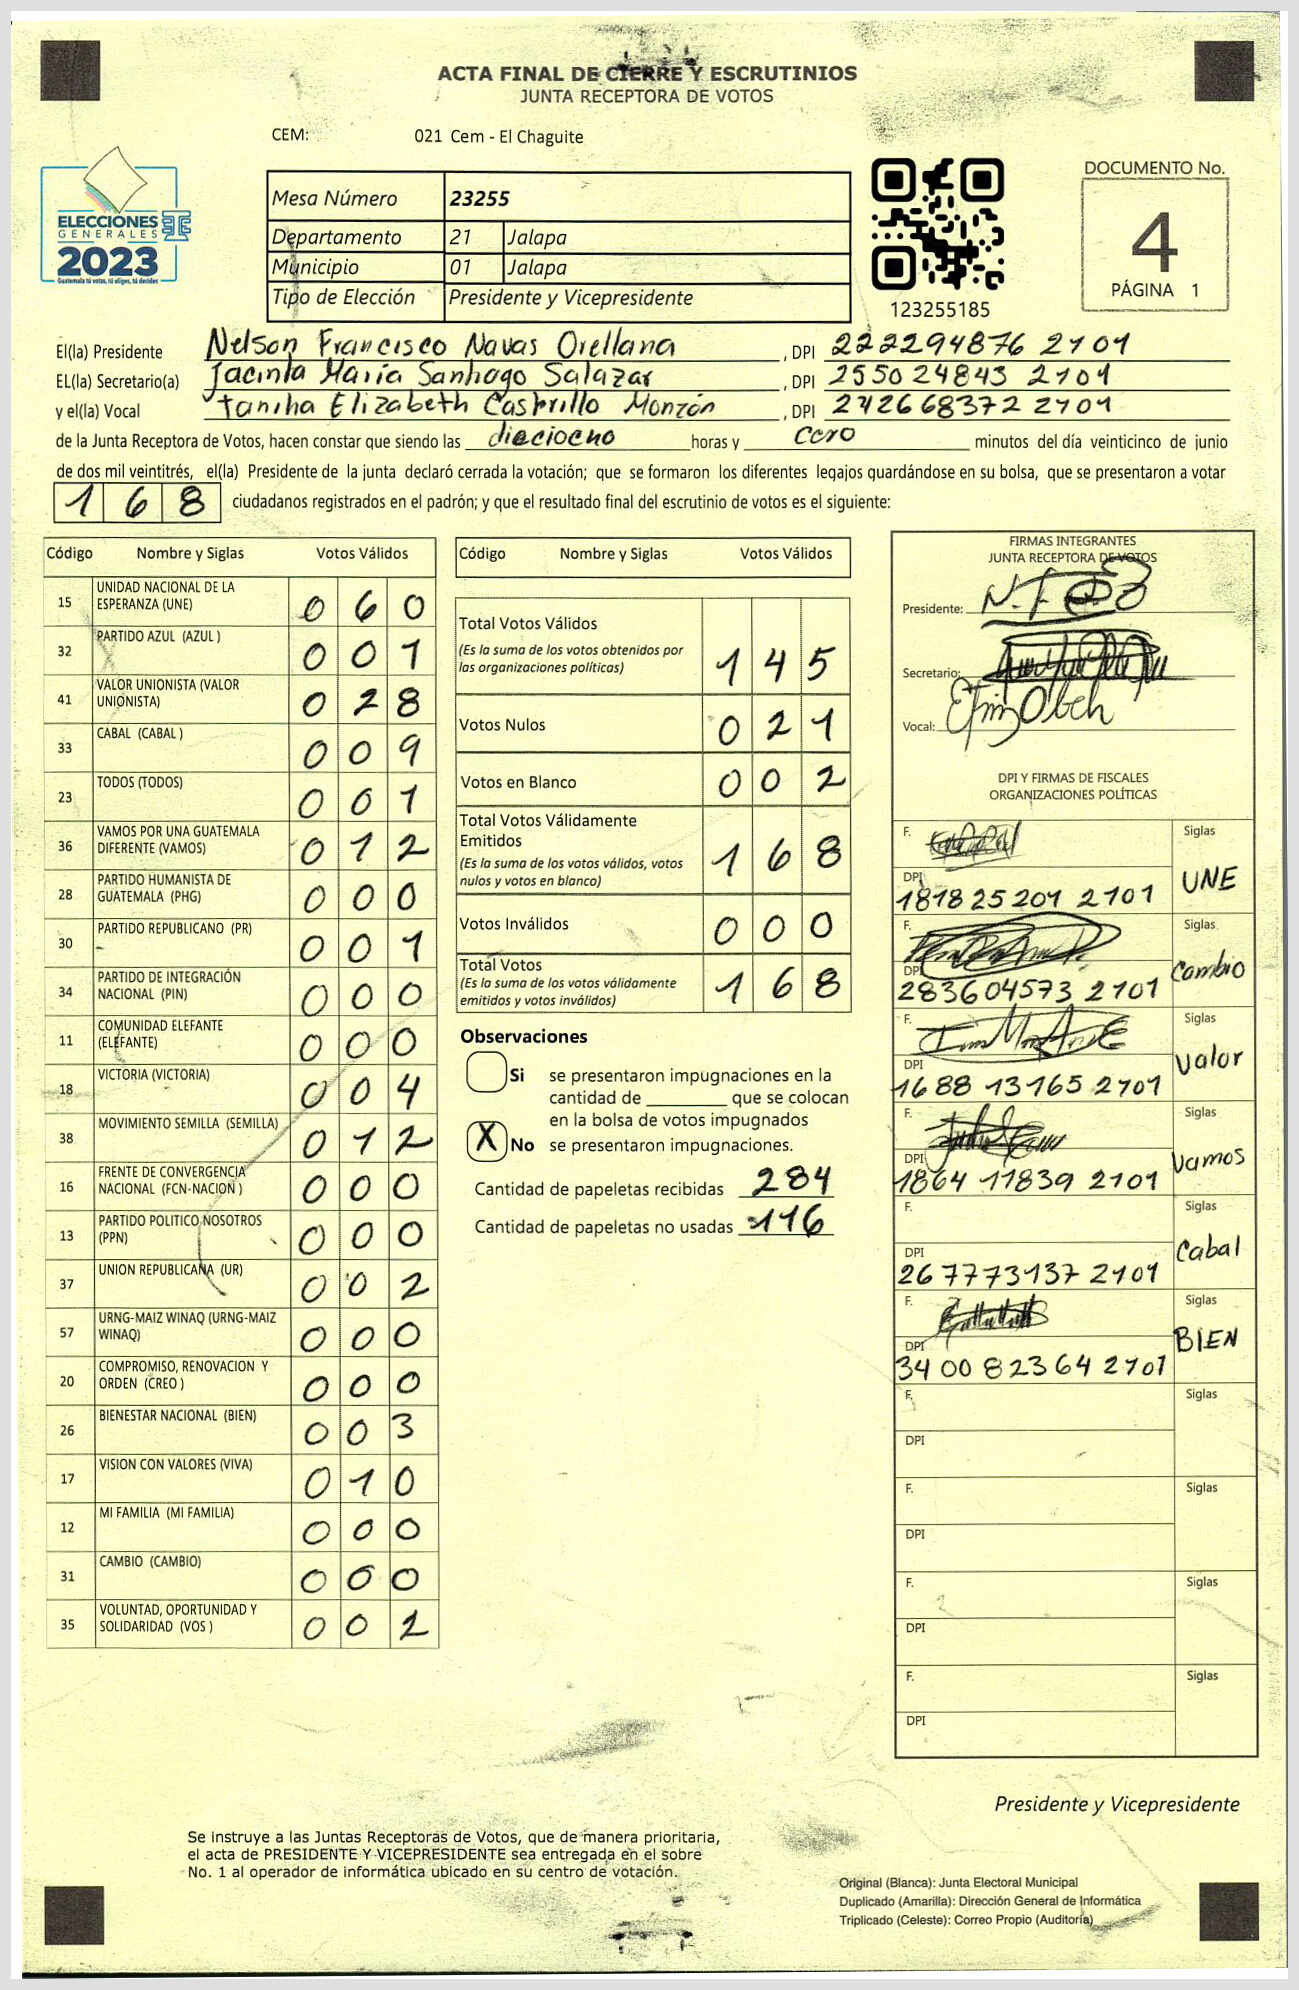 ACTA FINAL DE CIERRE Y ESCRUTINIOS
JUNTA RECEPTORA DE VOTOS
CEM: 021 Cem - El Chaguite
ELECCIONES
GENERALES
2023
Guatemala tú votas, tú eliges, tú decides
Mesa Número 23255
Departamento 21 Jalapa
Municipio 01 Jalapa
Tipo de Elección Presidente y Vicepresidente
123255185
DOCUMENTO No.
4
PÁGINA 1
El(la) Presidente Nelson Francisco Navas Orellana, DPI 222294876 2101
EL(la) Secretario(a) Jacinta María Santiago Salazar, DPI 255024843 2101
y el(la) Vocal Elizabeth Castrillo Monzón, DPI 242668372 2101
de la Junta Receptora de Votos, hacen constar que siendo las dieciocho horas y cero minutos del día veinticinco de junio
de dos mil veintitrés, el(la) Presidente de la junta declaró cerrada la votación; que se formaron los diferentes legajos guardándose en su bolsa, que se presentaron a votar
168 ciudadanos registrados en el padrón; y que el resultado final del escrutinio de votos es el siguiente:
Código Nombre y Siglas Votos Válidos
15 UNIDAD NACIONAL DE LA ESPERANZA (UNE) 060
32 PARTIDO AZUL (AZUL ) 001
41 VALOR UNIONISTA (VALOR UNIONISTA) 028
33 CABAL (CABAL ) 009
23 TODOS (TODOS) 001
36 VAMOS POR UNA GUATEMALA DIFERENTE (VAMOS) 012
28 PARTIDO HUMANISTA DE GUATEMALA (PHG) 000
30 PARTIDO REPUBLICANO (PR) 001
34 PARTIDO DE INTEGRACIÓN NACIONAL (PIN) 000
11 COMUNIDAD ELEFANTE (ELEFANTE) 000
18 VICTORIA (VICTORIA) 004
38 MOVIMIENTO SEMILLA (SEMILLA) 012
16 FRENTE DE CONVERGENCIA NACIONAL (FCN-NACION ) 000
13 PARTIDO POLITICO NOSOTROS (PPN) 000
37 UNION REPUBLICANA (UR) 002
57 URNG-MAIZ WINAQ (URNG-MAIZ WINAQ) 000
20 COMPROMISO, RENOVACION Y ORDEN (CREO ) 000
26 BIENESTAR NACIONAL (BIEN) 003
17 VISION CON VALORES (VIVA) 010
12 MI FAMILIA (MI FAMILIA) 000
31 CAMBIO (CAMBIO) 000
35 VOLUNTAD, OPORTUNIDAD Y SOLIDARIDAD (VOS ) 002
Código Nombre y Siglas Votos Válidos
Total Votos Válidos 145
(Es la suma de los votos obtenidos por
las organizaciones políticas)
Votos Nulos 021
Votos en Blanco 002
Total Votos Válidamente
Emitidos 168
(Es la suma de los votos válidos, votos
nulos y votos en blanco)
Votos Inválidos 000
Total Votos 168
(Es la suma de los votos válidamente
emitidos y votos inválidos)
Observaciones
Si se presentaron impugnaciones en la
cantidad de ________ que se colocan
en la bolsa de votos impugnados
X No se presentaron impugnaciones.
Cantidad de papeletas recibidas 284
Cantidad de papeletas no usadas 116
FIRMAS INTEGRANTES
JUNTA RECEPTORA DE VOTOS
Presidente:
Secretario:
Vocal:
DPI Y FIRMAS DE FISCALES
ORGANIZACIONES POLÍTICAS
F. Siglas
DPI UNE
1818 25 201 2101
F. Siglas
DPI Cambio
283604573 2101
F. Siglas
DPI Valor
1688 13165 2101
F. Siglas
DPI Vamos
1864 11839 2101
F. Siglas
DPI Cabal
267773137 2101
F. Siglas
DPI BIEN
3400 82364 2101
F. Siglas
DPI
F. Siglas
DPI
F. Siglas
DPI
F. Siglas
DPI
Presidente y Vicepresidente
Se instruye a las Juntas Receptoras de Votos, que de manera prioritaria,
el acta de PRESIDENTE Y VICEPRESIDENTE sea entregada en el sobre
No. 1 al operador de informática ubicado en su centro de votación.
Original (Blanca): Junta Electoral Municipal
Duplicado (Amarilla): Dirección General de Informática
Triplicado (Celeste): Correo Propio (Auditoría)